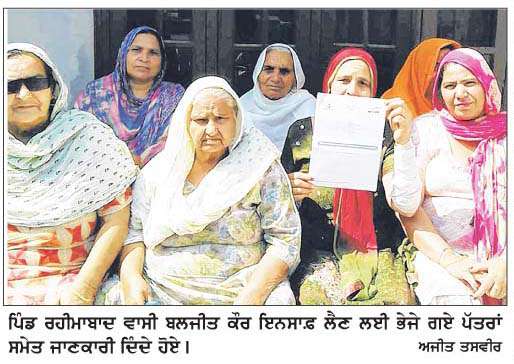 ਪਿੰਡ ਰਹੀਮਾਬਾਦ ਵਾਸੀ ਬਲਜੀਤ ਕੌਰ ਇਨਸਾਫ਼ ਲੈਣ ਲਈ ਭੇਜੇ ਗਏ ਪੱਤਰਾਂ
ਸਮੇਤ ਜਾਣਕਾਰੀ ਦਿੰਦੇ ਹੋਏ। ਅਜੀਤ ਤਸਵੀਰ